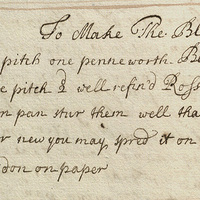 To Make The Bl
pitch one penneworth. B
e pitch & well refin'd Ross
n pan stur them well tha
r new you may spred it on
don on paper